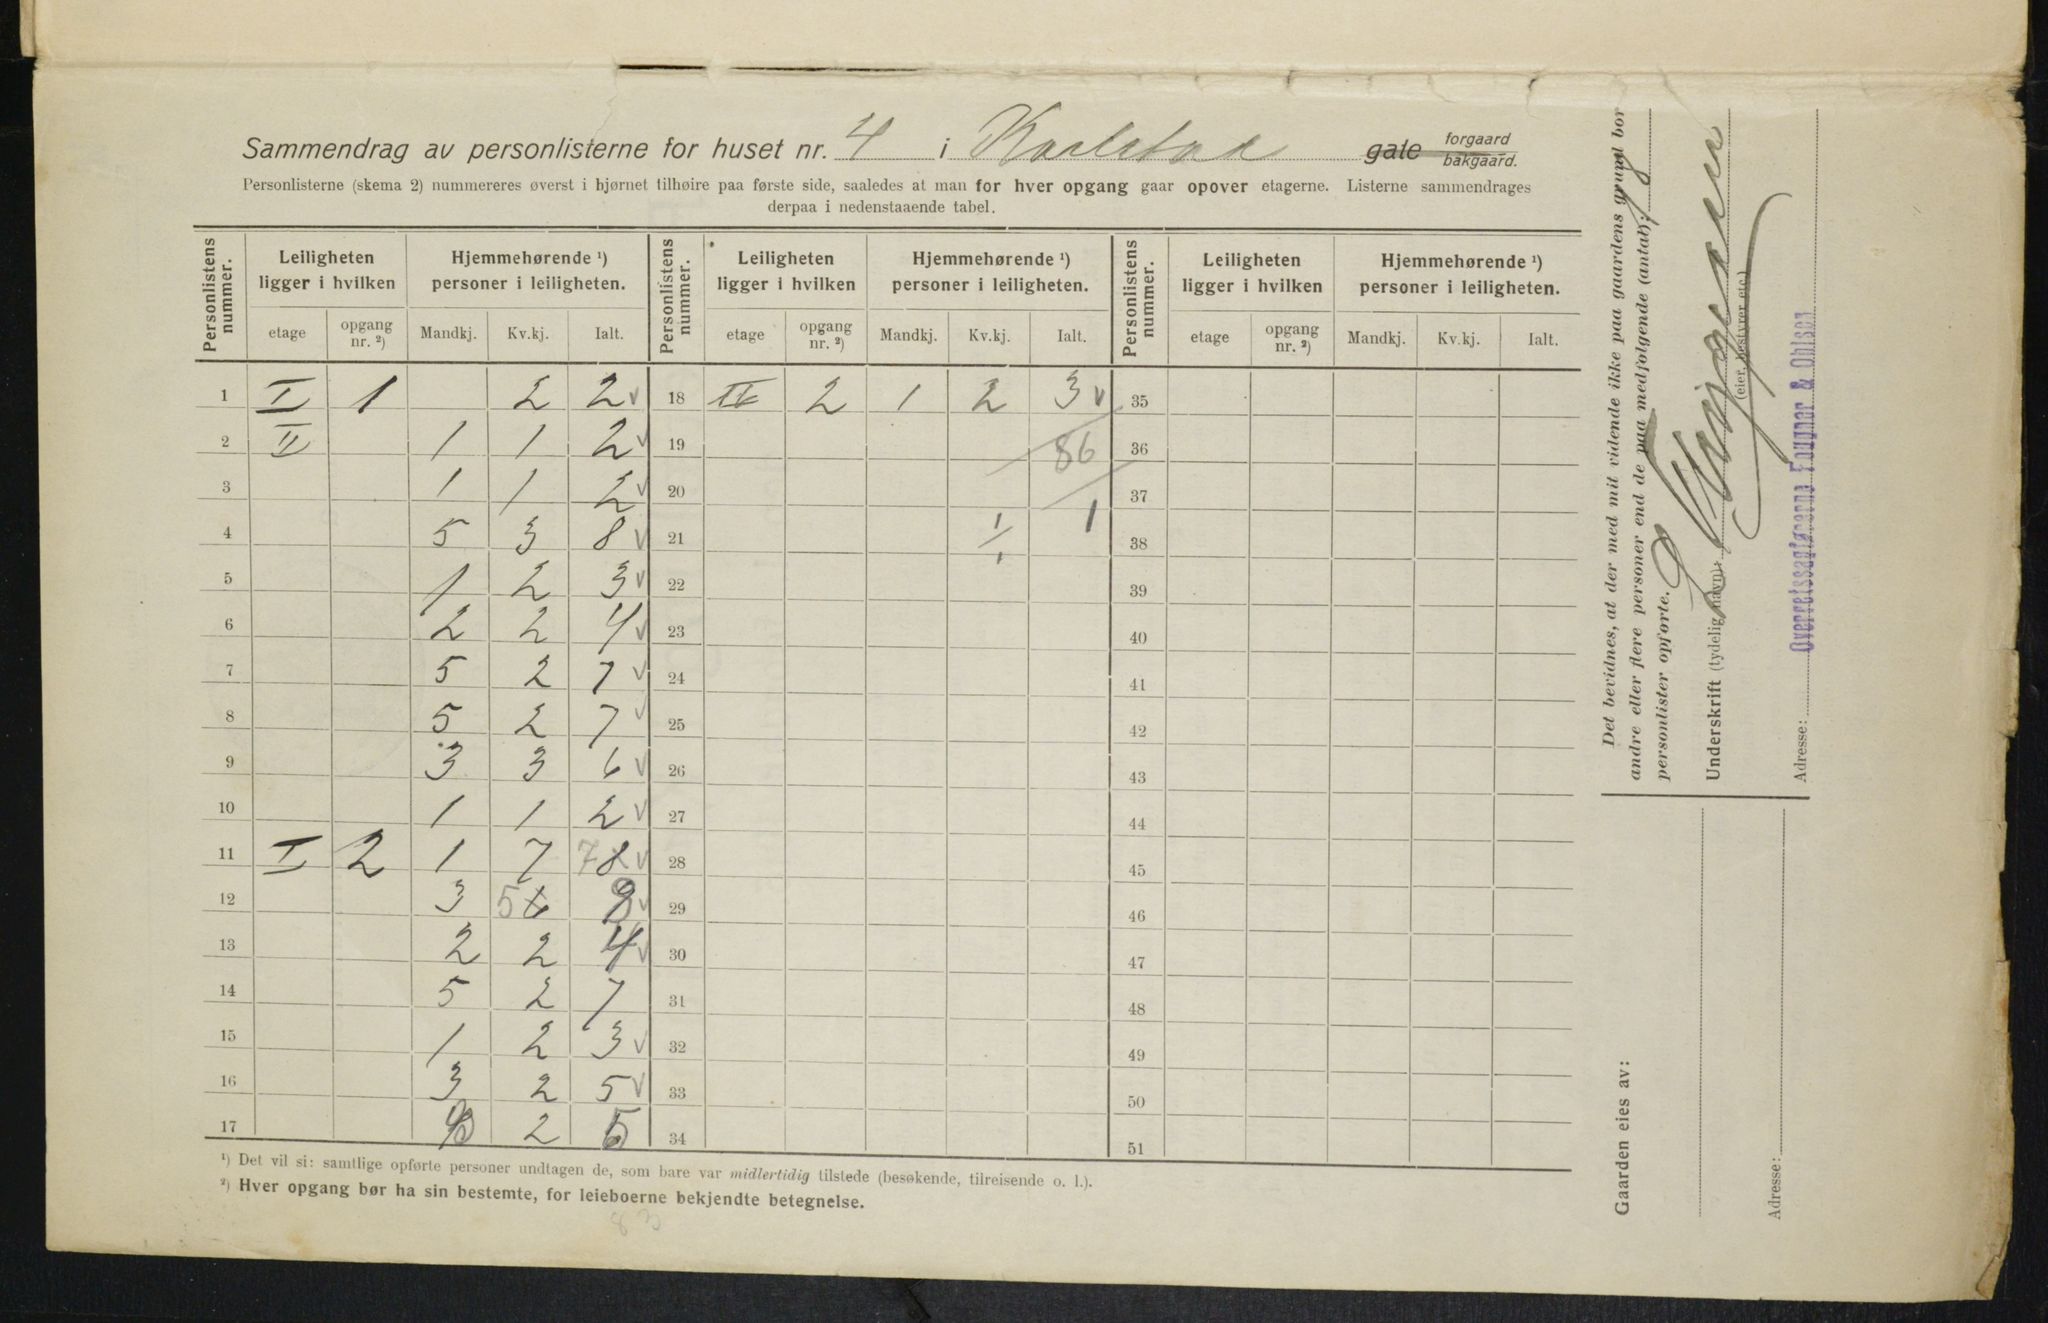 Sammendrag av personlisterne for huset nr. 4 i Karlstad gate forgaard bakgaard.
Personlisterne (skema 2) nummereres øverst i hjørnet tilhøire paa første side, saaledes at man for hver opgang gaar opover etagerne. Listerne sammendrages
derpaa i nedenstaaende tabel.
Personlistens nummer. Leiligheten ligger i hvilken Hjemmehørende ¹) personer i leiligheten. Personlistens nummer. Leiligheten ligger i hvilken Hjemmehørende ¹) personer i leiligheten. Personlistens nummer. Leiligheten ligger i hvilken Hjemmehørende ¹) personer i leiligheten.
etage opgang nr. ²) Mandkj. Kv.kj. Ialt. etage opgang nr. ²) Mandkj. Kv.kj. Ialt. etage opgang nr. ²) Mandkj. Kv.kj. Ialt.
1 I 1 2 2 v 18 II 2 1 2 3 v 35
2 II 1 1 2 v 19 86 36
3 1 1 2 v 20 37
4 5 3 8 v 21 1/1 1 38
5 1 2 3 v 22 39
6 2 2 4 v 23 40
7 5 2 7 v 24 41
8 5 2 7 v 25 42
9 3 3 6 v 26 43
10 1 1 2 v 27 44
11 I 2 1 7 7 8 v 28 45
12 3 5 6 8 v 29 46
13 2 2 4 v 30 47
14 5 2 7 31 48
15 1 2 3 v 32 49
16 3 2 5 v 33 50
17 3 2 5 34 51
¹) Det vil si: samtlige opførte personer undtagen de, som bare var midlertidig tilstede (besøkende, tilreisende o. l.).
²) Hver opgang bør ha sin bestemte, for leieboerne bekjendte betegnelse.
83
Det bevidnes, at der med mit vidende ikke paa gaardens grund bor
andre eller flere personer end de paa medfølgende (antal):
personlister opførte.
Underskrift (tydelig navn):
(eier, bestyrer etc.)
Adresse: Overretssagførerne Fougner & Ohlsen
Gaarden eies av:
Adresse: